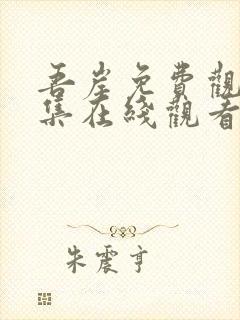 吾岸免費觀
集在綫觀看
朱震亨